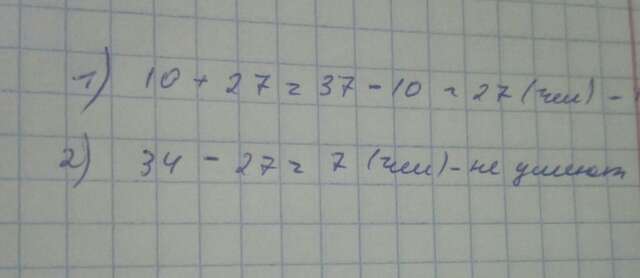 1) 10 + 27 = 37 - 10 = 27 (чел) -
2) 34 - 27 = 7 (чел) - не умеют